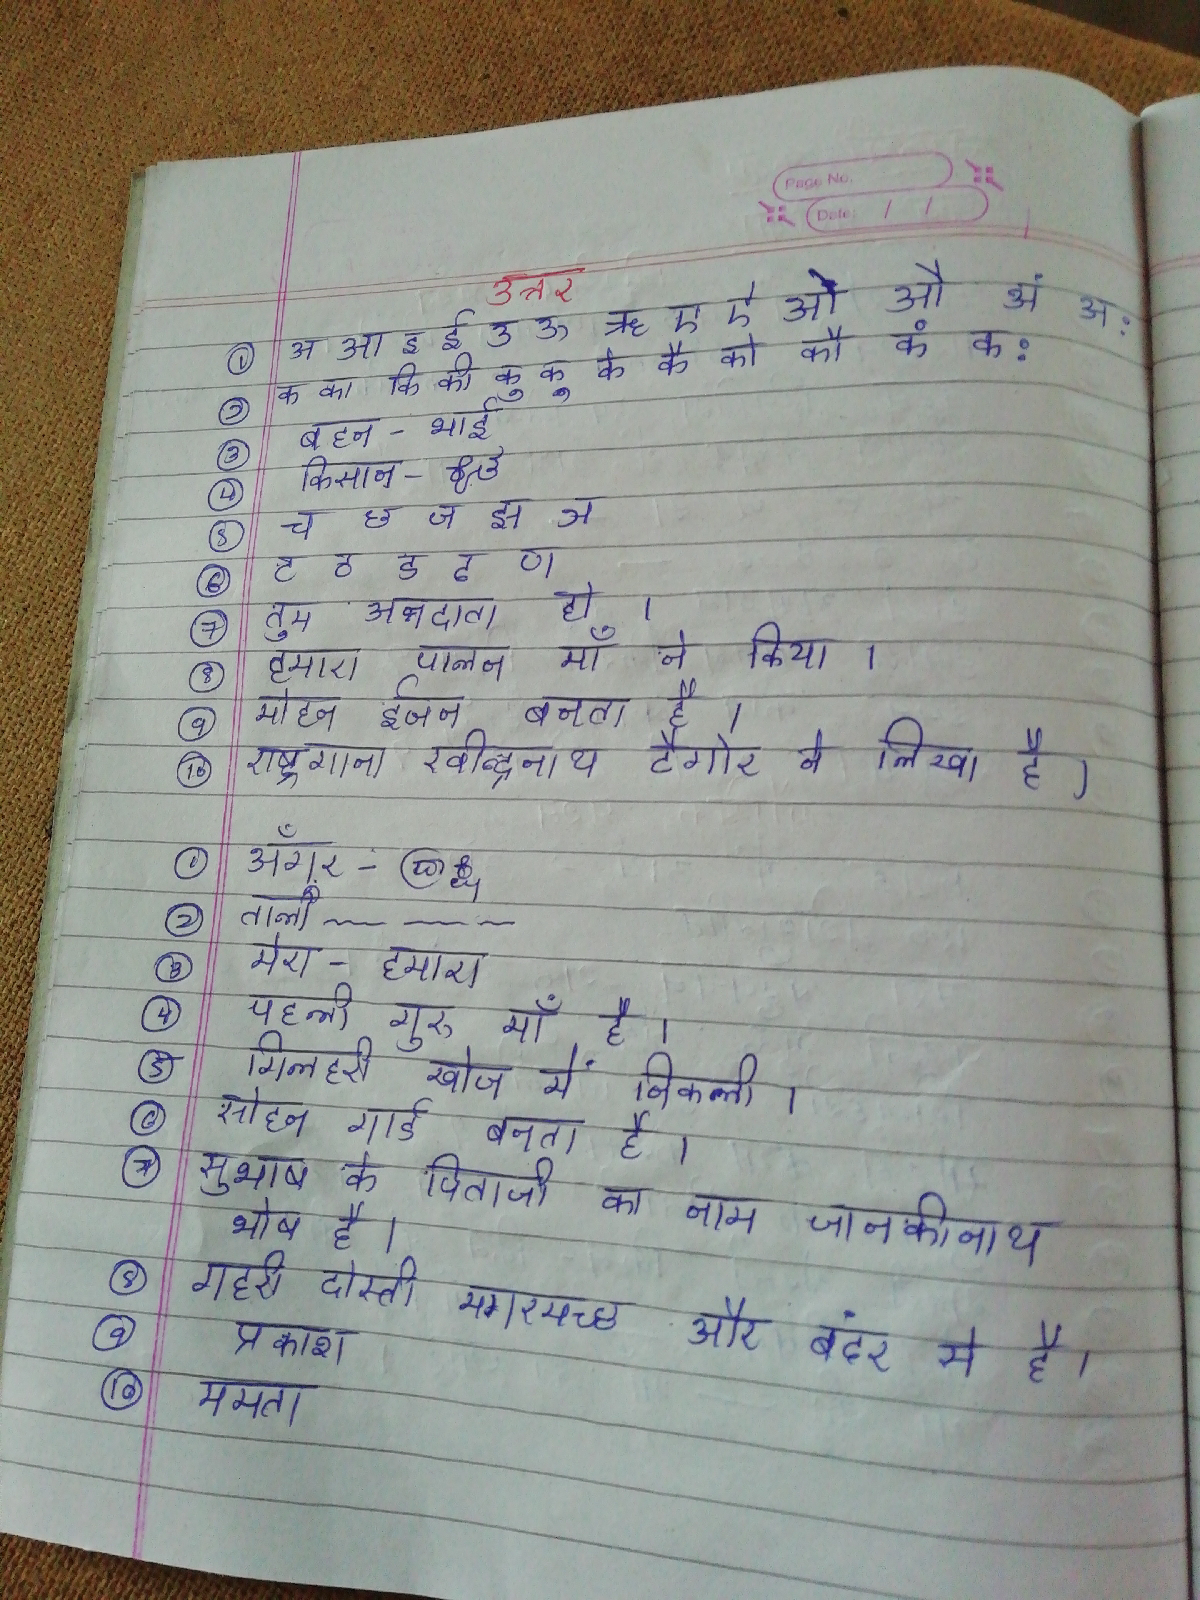 Page No.
Date: / /
उत्तर
① अ आ इ ई उ ऊ ऋ ए ऐ ओ औ अं अः
② क का कि की कु कू के कै को कौ कं कः
③ बहन - भाई
④ किसान -
⑤ च छ ज झ ञ
⑥ ट ठ ड ढ ण
⑦ तुम अन्नदाता हो ।
⑧ हमारा पालन माँ ने किया ।
⑨ मोहन ईंजन बनता है ।
⑩ राष्ट्रगाना रवीन्द्रनाथ टैगोर ने लिखा है ।
① अँगूर -
② ताली
③ मेरा - हमारा
④ पहली गुरु माँ है ।
⑤ गिलहरी खोज में निकली ।
⑥ सोहन गार्ड बनता है ।
⑦ सुभाष के पिताजी का नाम जानकीनाथ
भोष है ।
⑧ गहरी दोस्ती मगरमच्छ और बंदर मे है ।
⑨ प्रकाश
⑩ ममता